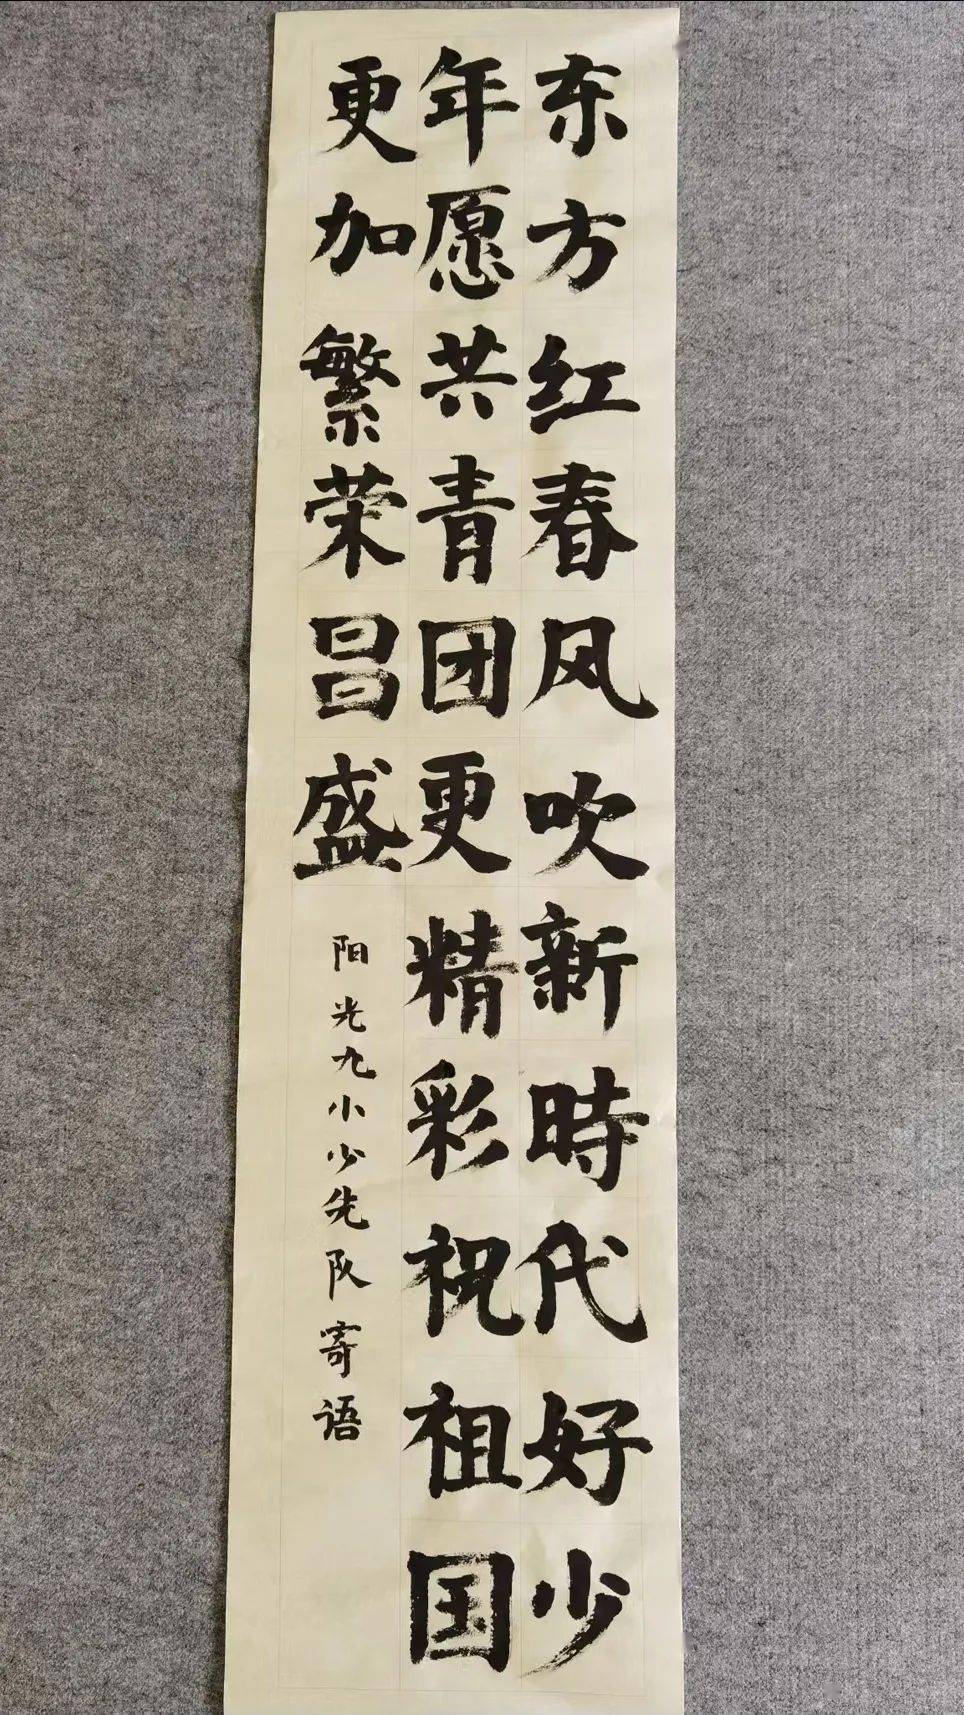 东方红春风吹新時代好少
年愿共青团更精彩祝祖国
更加繁荣昌盛
阳光九小少先队寄语